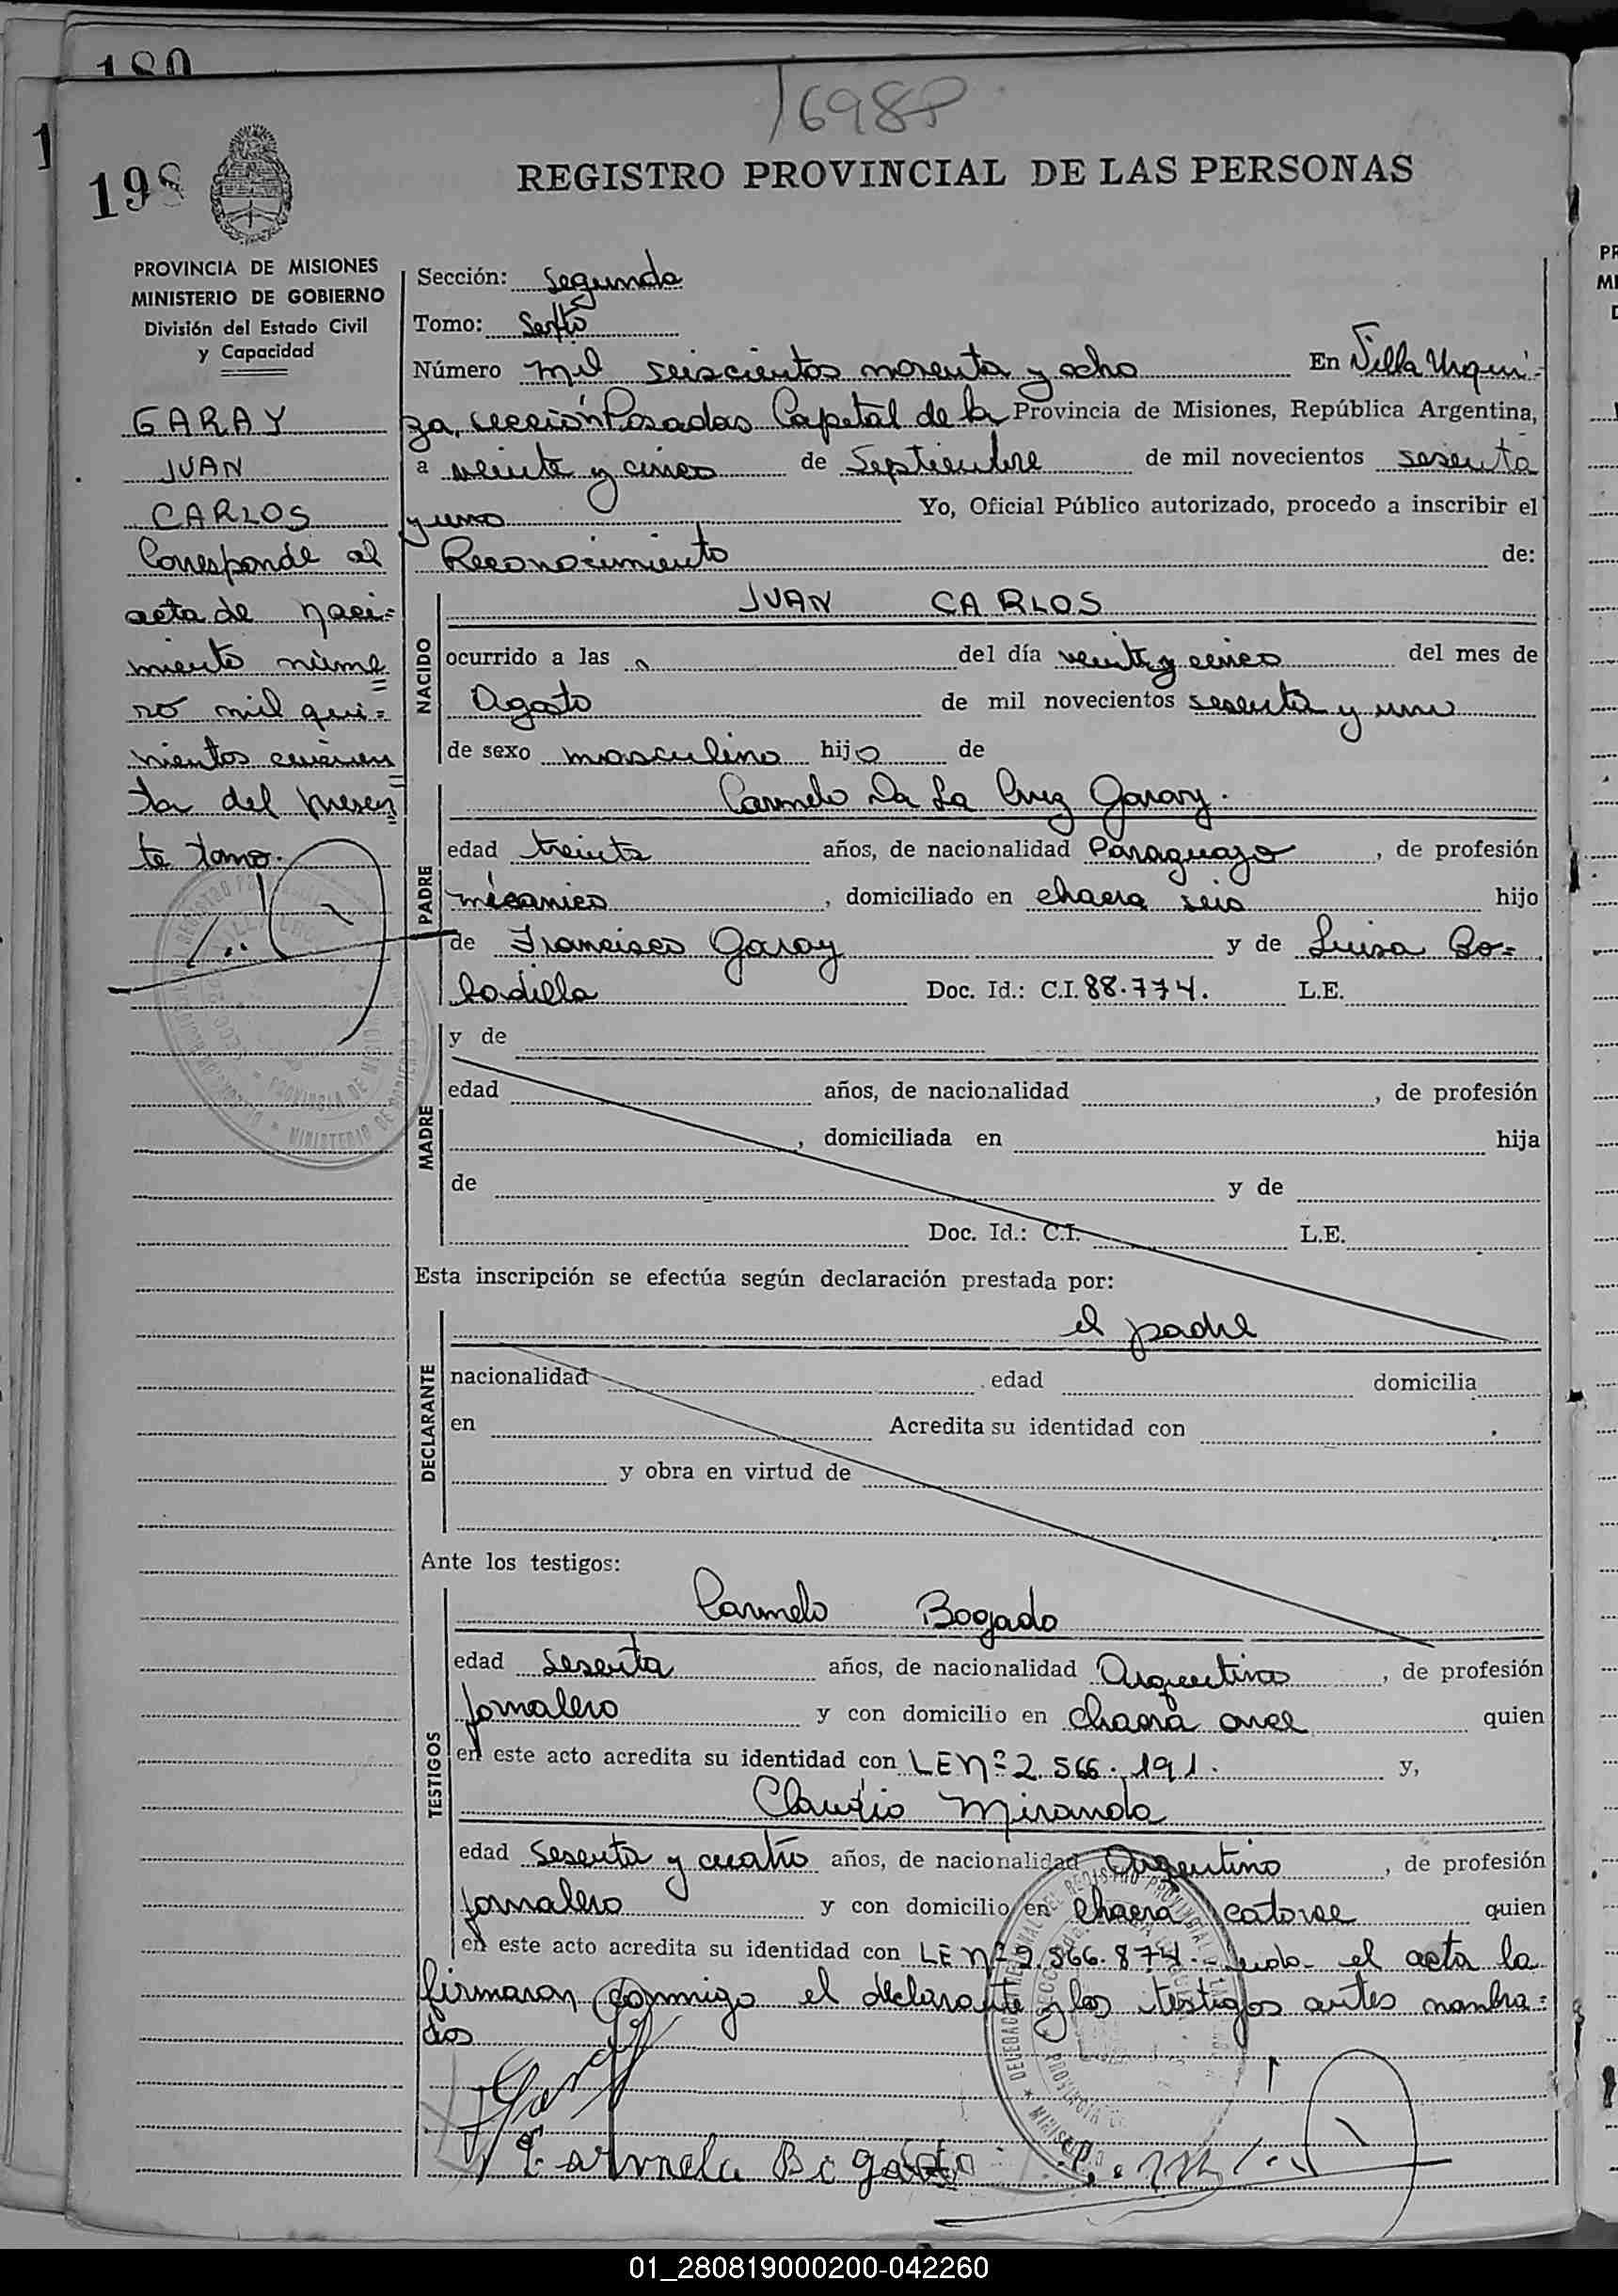 180
1698P
1
198
REGISTRO PROVINCIAL DE LAS PERSONAS
PROVINCIA DE MISIONES
MINISTERIO DE GOBIERNO
División del Estado Civil
y Capacidad
GARAY
JUAN
CARLOS
Corresponde al
acta de naci=
miento núme
ro mil qui=
nientos cuaren
ta del presen
te tomo.
Sección: Segunda
Tomo: Sexto
Número mil seiscientos noventa y ocho En Villa Urqui-
za, sección Posadas Capital de la Provincia de Misiones, República Argentina,
a veinte y cinco de Septiembre de mil novecientos sesenta
y uno Yo, Oficial Público autorizado, procedo a inscribir el
Reconocimiento de:
NACIDO
JUAN CARLOS
ocurrido a las del día veinte y cinco del mes de
Agosto de mil novecientos sesenta y uno
de sexo masculino hijo de
PADRE
Carmelo De La Cruz Garay.
edad treinta años, de nacionalidad Paraguayo, de profesión
mécanico, domiciliado en chacra seis hijo
de Francisco Garay y de Luisa Bo=
badilla Doc. Id.: C.I. 88.774. L.E.
MADRE
y de
edad años, de nacionalidad , de profesión
, domiciliada en hija
de y de
Doc. Id.: C.I. L.E.
Esta inscripción se efectúa según declaración prestada por:
DECLARANTE
el padre
nacionalidad edad domicilia
en Acredita su identidad con
y obra en virtud de
Ante los testigos:
TESTIGOS
Carmelo Bogado
edad Sesenta años, de nacionalidad Argentino, de profesión
Jornalero y con domicilio en Chacra once quien
en este acto acredita su identidad con LE Nº 2.566.191. y,
Claudio Miranda
edad Sesenta y cuatro años, de nacionalidad Argentino, de profesión
Jornalero y con domicilio en Chacra catorce quien
en este acto acredita su identidad con LE Nº 2.566.874.- Leida el acta la
firmaron conmigo el declarante y los testigos antes nombra=
dos
Garay
Carmelo Bogado
01_280819000200-042260